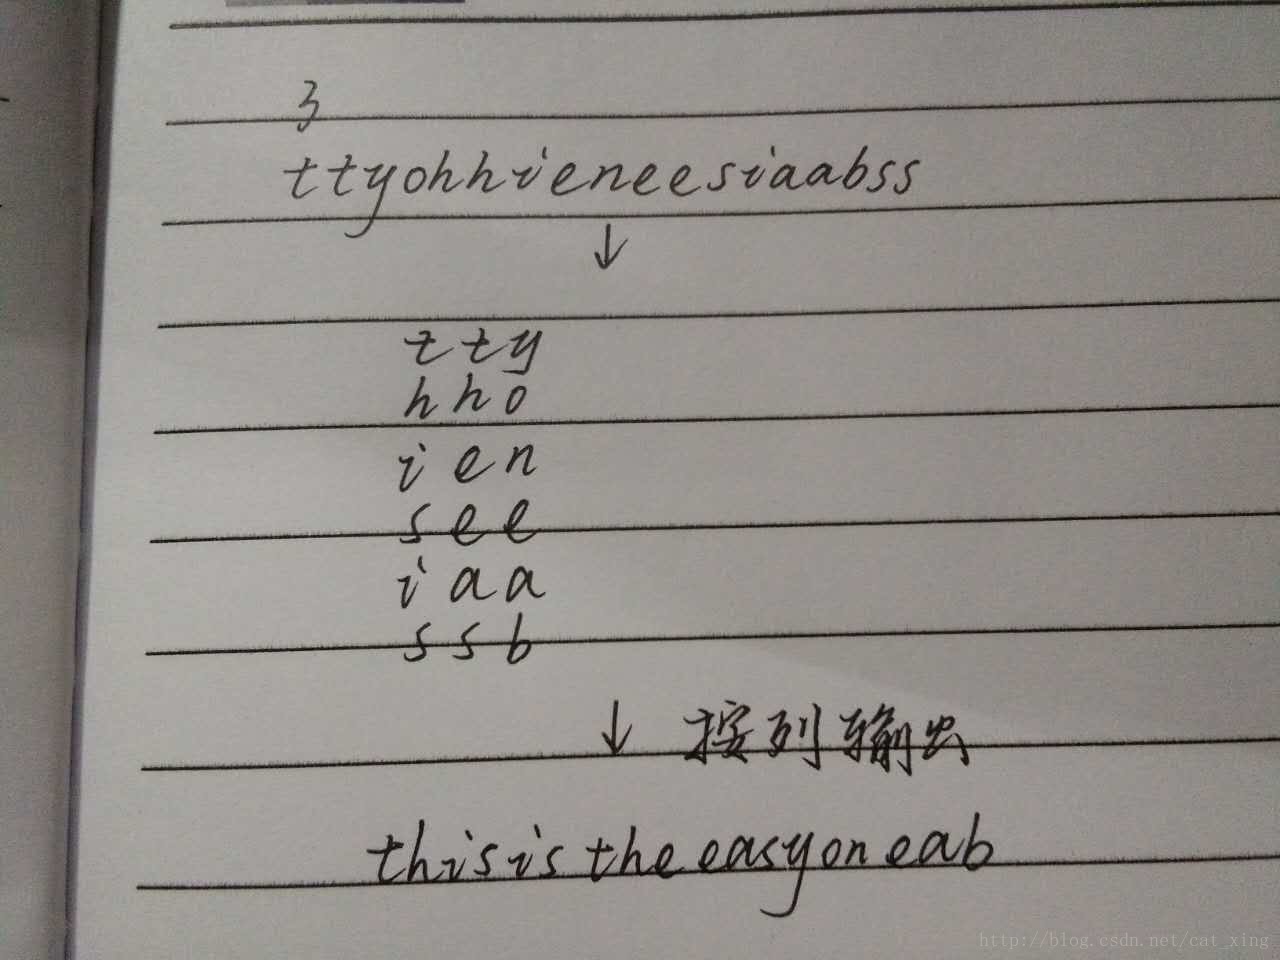 3
ttyohhieneesiaabss
↓
t t y
h h o
i e n
s e e
i a a
s s b
↓ 按列输出
thisistheeasyoneab
http://blog.csdn.net/cat_xing